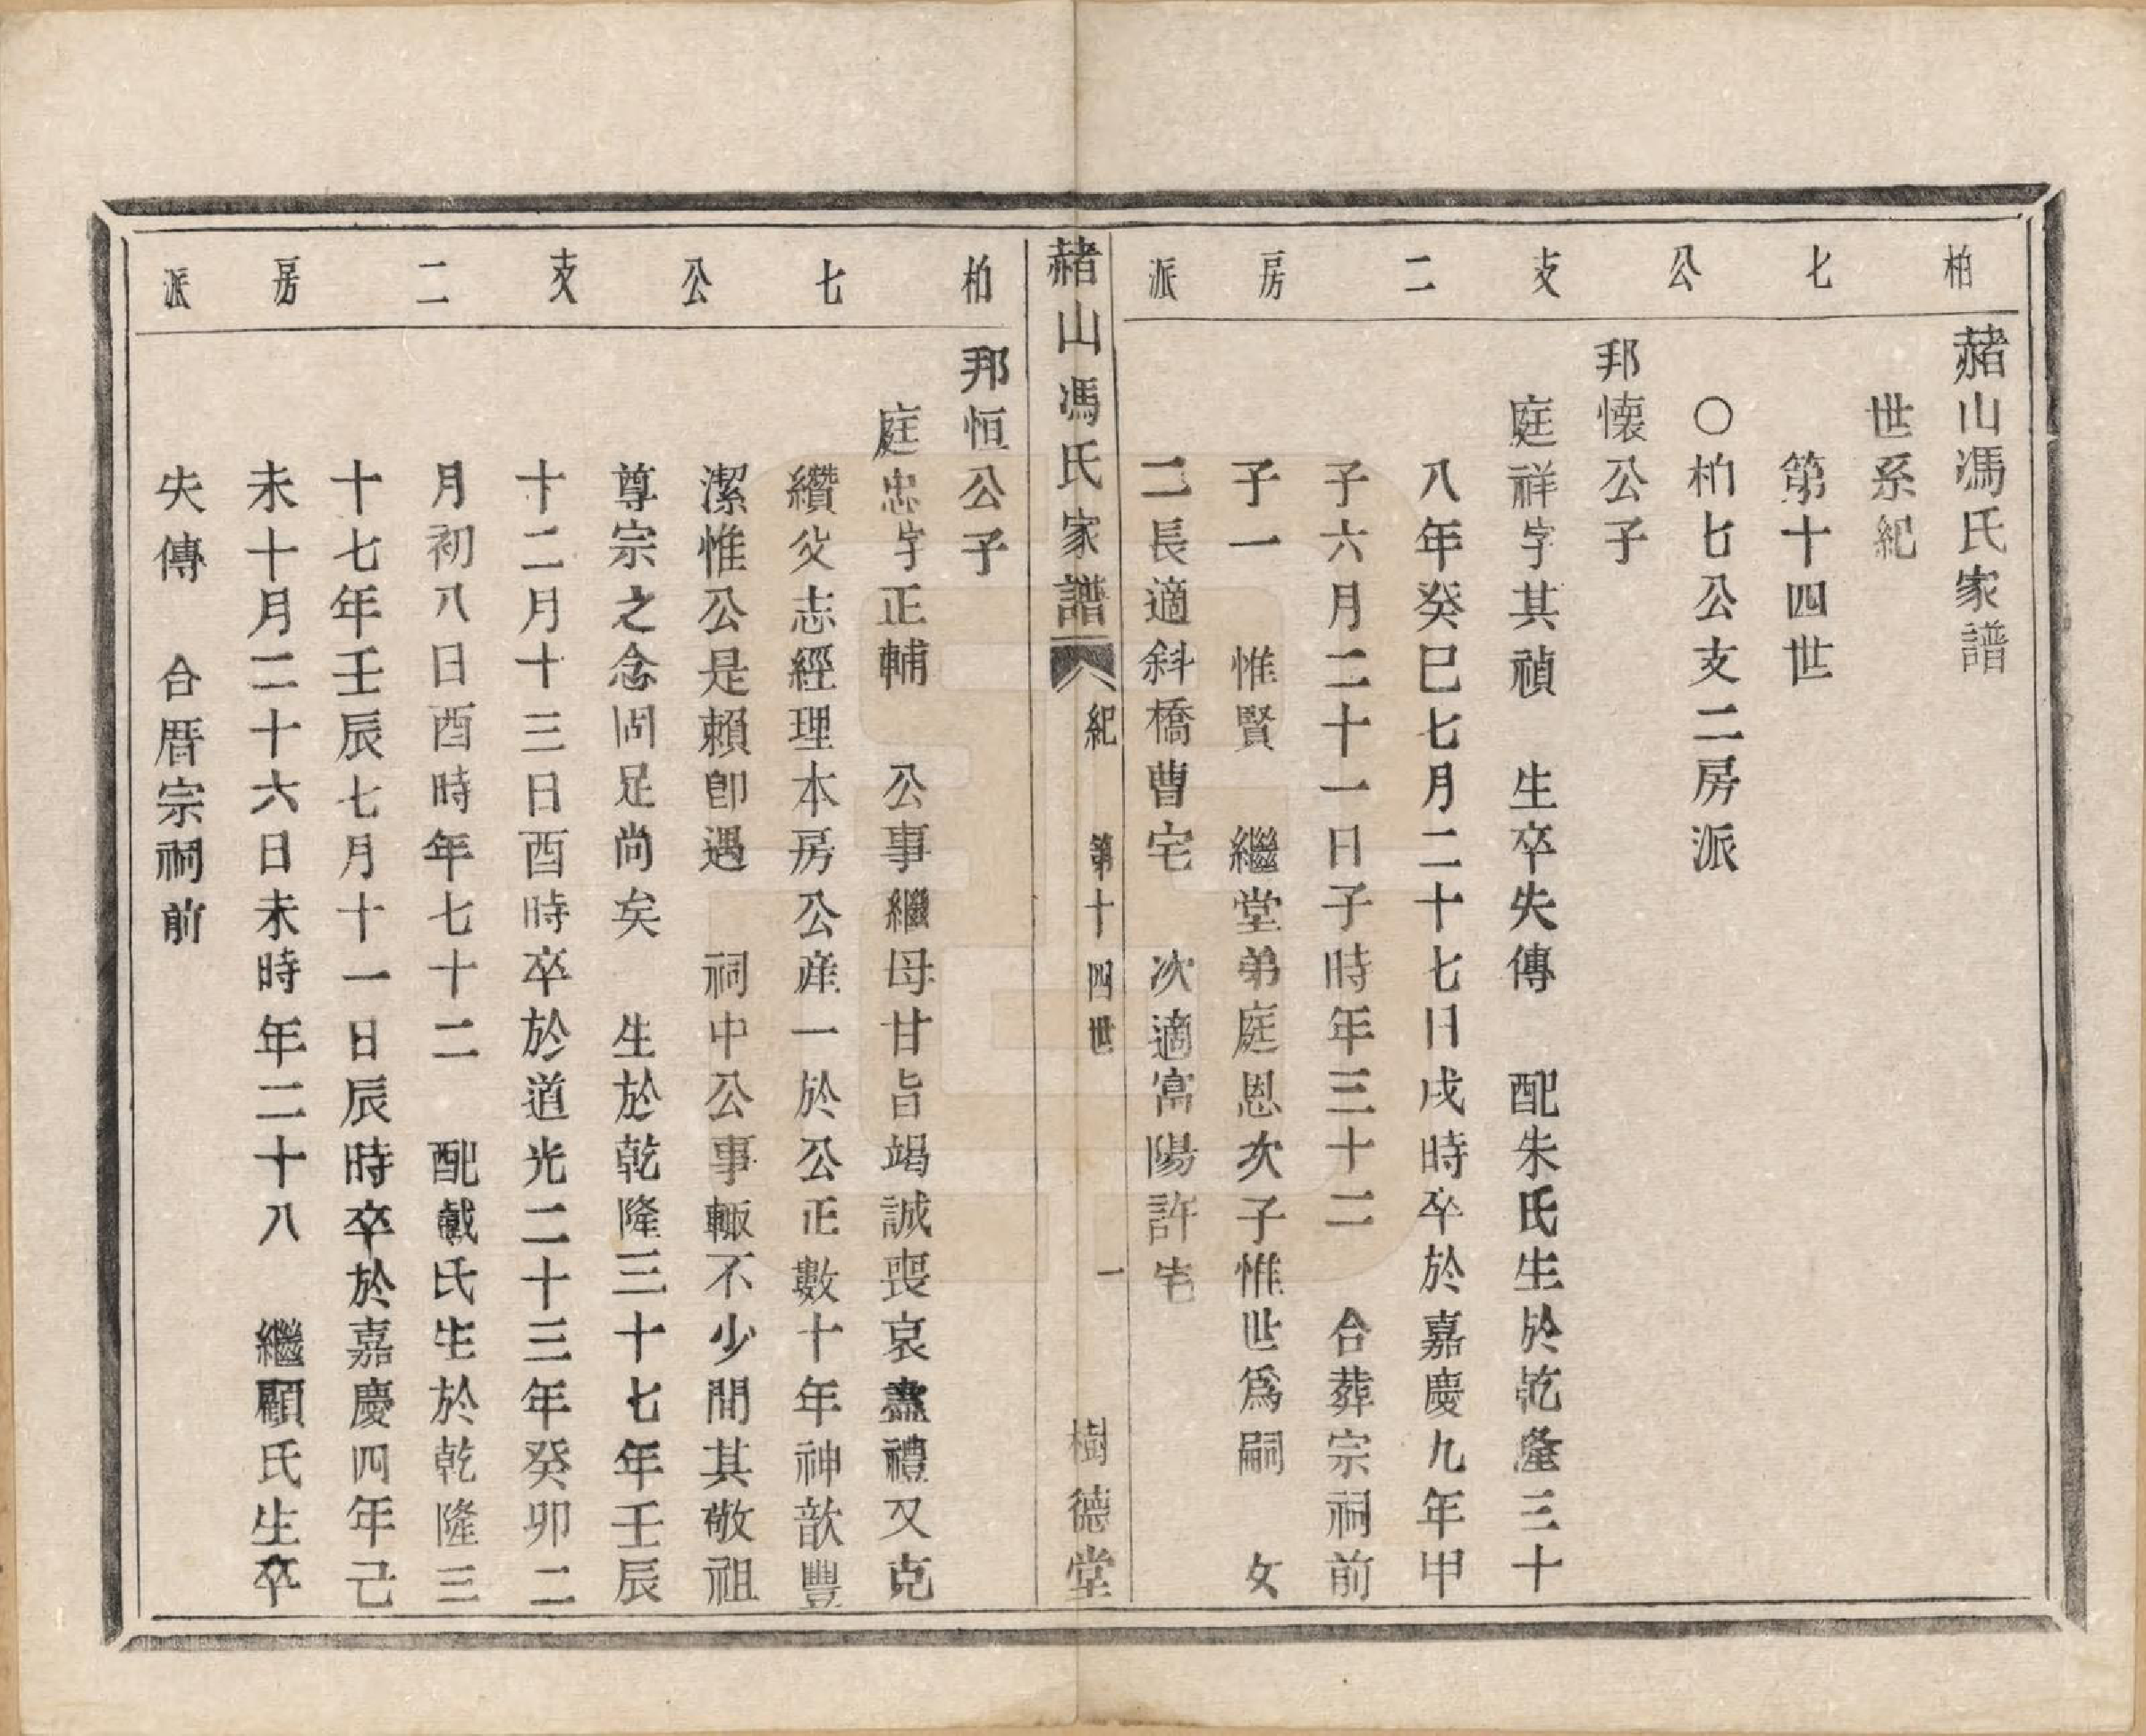 柏七公支二房派
赭山馮氏家譜
世系紀
第十四世
○柏七公支二房派
邦懷公子
庭祥字其禎　生卒失傳　配朱氏生於乾隆三十
八年癸巳七月二十七日戌時卒於嘉慶九年甲
子六月二十一日子時年三十二　合葬宗祠前
子一　惟賢　繼堂弟庭恩次子惟世爲嗣　女
二長適斜橋曹宅　次適富陽許宅
赭山馮氏家譜　紀　第十四世　一　樹德堂
柏七公支二房派
邦恒公子
庭忠字正輔　公事繼母甘旨竭誠喪哀盡禮又克
纘父志經理本房公產一於公正數十年神歆豐
潔惟公是賴卽遇　祠中公事輙不少間其敬祖
尊宗之念固足尚矣　生於乾隆三十七年壬辰
十二月十三日酉時卒於道光二十三年癸卯二
月初八日酉時年七十二　配戴氏生於乾隆三
十七年壬辰七月十一日辰時卒於嘉慶四年己
未十月二十六日未時年二十八　繼顧氏生卒
失傳　合厝宗祠前